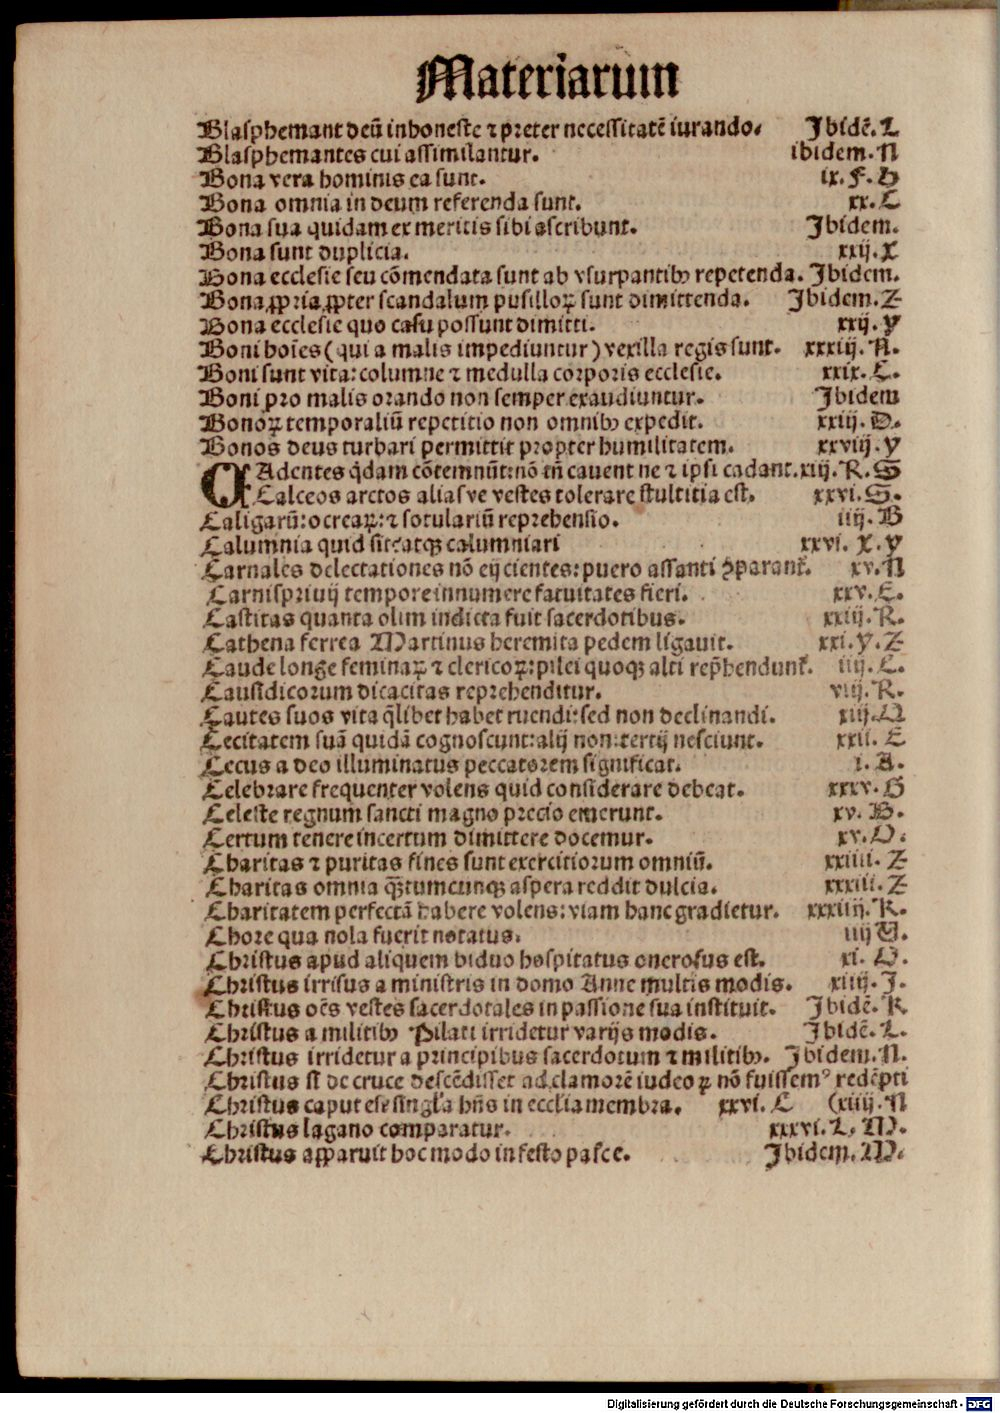 Materiarum
Blasphemant deū inhoneste ⁊ preter necessitatē iurando. Ibidē. L
Blasphemantes cui assimilantur. ibidem. N
Bona vera hominis ea sunt. ix. F. H
Bona omnia in deum referenda sunt. xx. C
Bona sua quidam ex meritis sibi ascribunt. Ibidem.
Bona sunt duplicia. xxij. X
Bona ecclesie seu cōmendata sunt ab vsurpantibꝰ repetenda. Ibidem.
Bona ꝓpria ꝓpter scandalum pusilloꝝ sunt dimittenda. Ibidem. Z
Bona ecclesie quo casu possunt dimitti. xxij. Y
Boni hoīes (qui a malis impediuntur) vexilla regis sunt. xxxiij. A.
Boni sunt vita: columne ⁊ medulla corporis ecclesie. xxix. C.
Boni pro malis orando non semper exaudiuntur. Ibidem
Bonoꝝ temporaliū repetitio non omnibꝰ expedit. xxiij. D.
Bonos deus turbari permittit propter humilitatem. xxviij. Y
CAdentes q̄dam cōtemnūt: nō tn̄ cauent ne ⁊ ipsi cadant. xij. R. S
Calceos arctos aliasve vestes tolerare stultitia est. xxvi. S.
Caligarū: ocreaꝝ: ⁊ sotulariū reprehensio. iiij. B
Calumnia quid sit: atqꝫ calumniari xxvi. X. Y
Carnales delectationes nō eijcientes: puero assanti ꝯparant̄. xv. N
Carnispriuij tempore innumere fatuitates fieri. xxv. C.
Castitas quanta olim indicta fuit sacerdotibus. xxiij. R.
Cathena ferrea Martinus heremita pedem ligauit. xxi. Y. Z
Caude longe feminaꝝ ⁊ clericoꝝ: pilei quoqꝫ alti rep̄hendunt̄. iiij. C.
Causidicorum dicacitas reprehenditur. viij. R.
Cautes suos vita q̄libet habet ruendi: sed non declinandi. xiij. Q
Cecitatem suā quidā cognoscunt: alij non: tertij nesciunt. xxii. E
Cecus a deo illuminatus peccatorem significat. i. A.
Celebrare frequenter volens quid considerare debeat. xxxv. G
Celeste regnum sancti magno precio emerunt. xv. B.
Certum tenere incertum dimittere docemur. xv. O.
Charitas ⁊ puritas fines sunt exercitiorum omniū. xxiiii. Z
Charitas omnia q̄tumcunqꝫ aspera reddit dulcia. xxxiii. Z
Charitatem perfectā habere volens: viam hanc gradietur. xxxiiij. K.
Chore qua nola fuerit notatus. iiij V.
Christus apud aliquem biduo hospitatus onerosus est. xi. O.
Christus irrisus a ministris in domo Anne multis modis. xiiij. I.
Christus oēs vestes sacerdotales in passione sua instituit. Ibidē. K
Christus a militibꝰ Pilati irridetur varijs modis. Ibidē. L.
Christus irridetur a principibus sacerdotum ⁊ militibꝰ. Ibidem. N.
Christus si de cruce descēdisset ad clamorē iudeoꝝ nō fuissemꝰ redēpti
Christus caput ese singĺa hn̄s in ecclia membra. xxvi. C (xiiij. N
Christus lagano comparatur. xxxvi. L. M.
Christus apparuit hoc modo in festo pasce. Ibidem. M.
Digitalisierung gefördert durch die Deutsche Forschungsgemeinschaft - DFG